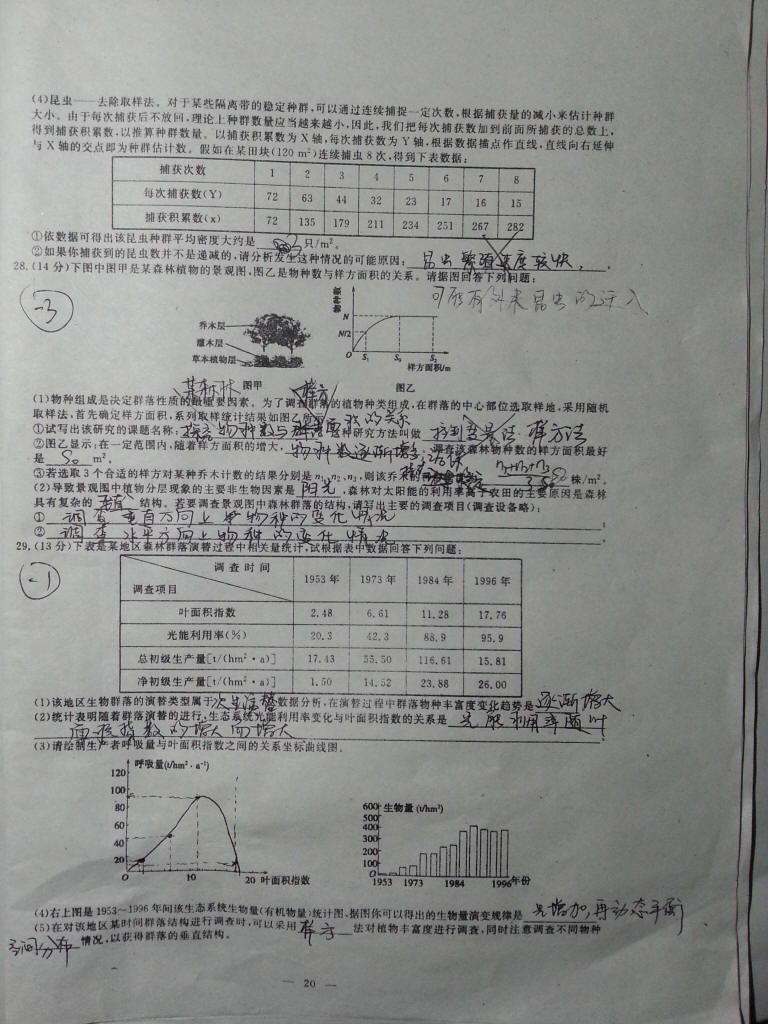 (4)昆虫——去除取样法。对于某些隔离带的稳定种群,可以通过连续捕捉一定次数,根据捕获量的减小来估计种群
大小。由于每次捕获后不放回,理论上种群数量应当越来越小,因此,我们把每次捕获数加到前面所捕获的总数上,
得到捕获积累数,以推算种群数量。以捕获积累数为X轴,每次捕获数为Y轴,根据数据描点作直线,直线向右延伸
与X轴的交点即为种群估计数。假如在某田块(120 m²)连续捕虫8次,得到下表数据:
捕获次数 1 2 3 4 5 6 7 8
每次捕获数(Y) 72 63 44 32 23 17 16 15
捕获积累数(x) 72 135 179 211 234 251 267 282
①依数据可得出该昆虫种群平均密度大约是 只/m²。
②如果你捕到的昆虫数并不是递减的,请分析发生这种情况的可能原因: 昆虫繁殖速度较快 。
28.(14分)下图中图甲是某森林植物的景观图,图乙是物种数与样方面积的关系。请据图回答下列问题:
可能有外来昆虫的迁入
-3
乔木层
灌木层
草本植物层
图甲
物种数
N
N/2
O S₁ S₀ S₂
样方面积/m
图乙
某森林 样方
(1)物种组成是决定群落性质的最重要因素。为了调查群落的植物种类组成,在群落的中心部位选取样地,采用随机
取样法,首先确定样方面积,系列取样统计结果如图乙所示。
①试写出该研究的课题名称: 探究物种数与 面积的关系 这种研究方法叫做 样方法
②图乙显示:在一定范围内,随着样方面积的增大, 物种数逐渐增多 ;调查该森林物种数的样方面积最好
是 S₀ m²。
③若选取3个合适的样方对某种乔木计数的结果分别是n₁、n₂、n₃,则该乔木的 n₁+n₂+n₃ 3S₀ 株/m²。
(2)导致景观图中植物分层现象的主要非生物因素是 阳光 ,森林对太阳能的利用率高于农田的主要原因是森林
具有复杂的 结构。若要调查景观图中森林群落的结构,请写出主要的调查项目(调查设备略):
① 调查垂直方向上 物种的变化情况 ;
② 调查水平方向上物种的变化情况 。
29.(13分)下表是某地区森林群落演替过程中相关量统计,试根据表中数据回答下列问题:
-1
调查时间 调查项目 1953年 1973年 1984年 1996年
叶面积指数 2.48 6.61 11.28 17.76
光能利用率(%) 20.3 42.3 88.9 95.9
总初级生产量[t/(hm²·a)] 17.43 55.50 116.61 15.81
净初级生产量[t/(hm²·a)] 1.50 14.52 23.88 26.00
(1)该地区生物群落的演替类型属于 次生演替 数据分析,在演替过程中群落物种丰富度变化趋势是 逐渐增大
(2)统计表明随着群落演替的进行,生态系统光能利用率变化与叶面积指数的关系是 光能利用率随叶
面积指数的增大而增大 。
(3)请绘制生产者呼吸量与叶面积指数之间的关系坐标曲线图。
呼吸量(t/hm²·a⁻¹)
120
100
80
60
40
20
0 10 20 叶面积指数
生物量(t/hm²)
600
500
400
300
200
100
0
1953 1973 1984 1996年份
(4)右上图是1953~1996年间该生态系统生物量(有机物量)统计图,据图你可以得出的生物量演变规律是 先增加,再动态平衡
(5)在对该地区某时间群落结构进行调查时,可以采用 样方 法对植物丰富度进行调查,同时注意调查不同物种
空间分布 情况,以获得群落的垂直结构。
— 20 —